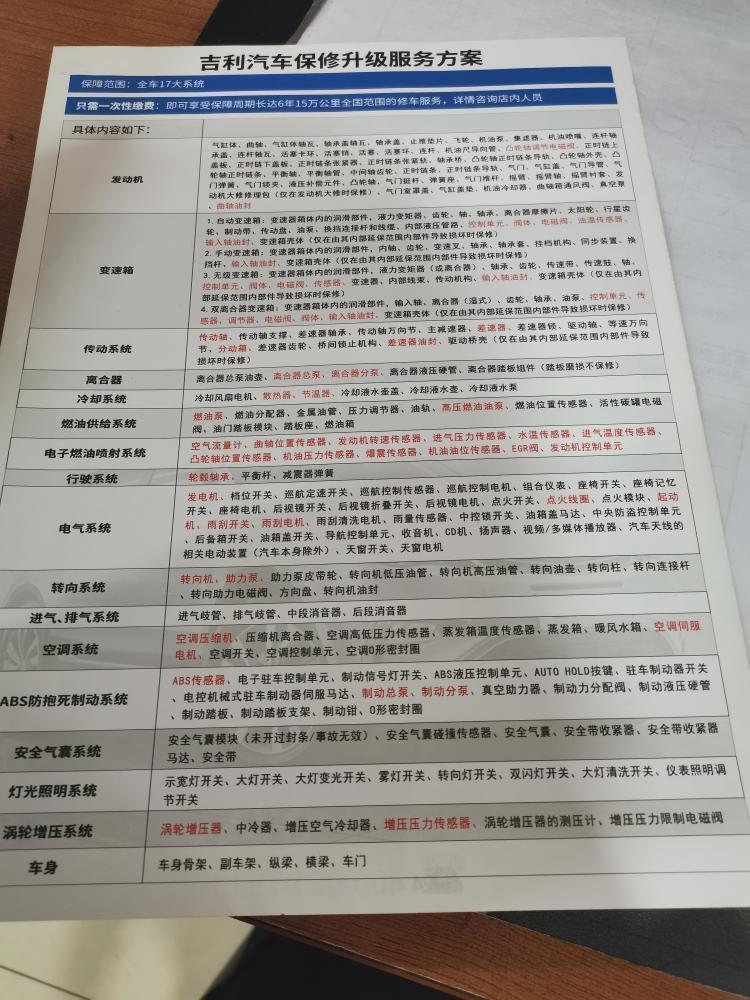 吉利汽车保修升级服务方案
保障范围：全车17大系统
只需一次性缴费：即可享受保障周期长达6年15万公里全国范围的修车服务，详情咨询店内人员
具体内容如下：
发动机
气缸体、曲轴、气缸体轴瓦、轴承盖轴瓦、轴承盖、止推垫片、飞轮、机油泵、集滤器、机油喷嘴、连杆轴
承盖、连杆轴瓦、活塞卡环、活塞销、活塞、活塞环、连杆、机油尺导向管、凸轮轴调节电磁阀、正时链上
盖板、正时链下盖板、正时链条张紧器、正时链条张紧轨、轴承桥、凸轮轴正时链条导轨、凸轮轴外壳、凸
轮轴正时链条、平衡轴、平衡轴管、中间轴齿轮、正时链条、正时链条导轨、气门、气缸盖、气门导管、气
门弹簧、气门锁夹、液压补偿元件、凸轮轴、气门挺杆、弹簧座、气门推杆、摇臂、摇臂轴、摇臂衬套、发
动机大修修理包（仅在发动机大修时保修）、气门室罩盖、气缸盖垫、机油冷却器、曲轴箱通风阀、真空泵
、曲轴油封
变速箱
1. 自动变速箱：变速器箱体内的润滑部件，液力变矩器、齿轮、轴、轴承、离合器摩擦片、太阳轮、行星齿
轮、制动带、传动盘、油泵、换挡连接杆和线缆、内部液压管路、控制单元、阀体、电磁阀、油温传感器、
输入轴油封、变速箱壳体（仅在由其内部延保范围内部件导致损坏时保修）
2. 手动变速箱：变速器箱体内的润滑部件，内轴、齿轮、变速叉、轴承、轴承套、挂档机构、同步装置、换
挡杆、输入轴油封、变速箱壳体（仅在由其内部延保范围内部件导致损坏时保修）
3. 无级变速箱：变速器箱体内的润滑部件，液力变矩器（或离合器）、轴承、齿轮、传速带、传速鼓、轴、
控制单元、阀体、电磁阀、传感器、变速器、内部线束、传动机构、输入轴油封、变速箱壳体（仅在由其内
部延保范围内部件导致损坏时保修）
4. 双离合器变速箱：变速器箱体内的润滑部件，输入轴、离合器（湿式）、齿轮、轴承、油泵、控制单元、传
感器、调节器、电磁阀、阀体、输入轴油封、变速箱壳体（仅在由其内部延保范围内部件导致损坏时保修）
传动系统
传动轴、传动轴支撑、差速器轴承、传动轴万向节、主减速器、差速器、差速器锁、驱动轴、等速万向
节、分动箱、差速器齿轮、桥间锁止机构、差速器油封、驱动桥壳（仅在由其内部延保范围内部件导致
损坏时保修）
离合器
离合器总泵油壶、离合器总泵、离合器分泵、离合器液压硬管、离合器踏板组件（踏板磨损不保修）
冷却系统
冷却风扇电机、散热器、节温器、冷却液水壶盖、冷却液水壶、冷却液水泵
燃油供给系统
燃油泵、燃油分配器、金属油管、压力调节器、油轨、高压燃油油泵、燃油位置传感器、活性碳罐电磁
阀、油门踏板模块、踏板座、燃油箱
电子燃油喷射系统
空气流量计、曲轴位置传感器、发动机转速传感器、进气压力传感器、水温传感器、进气温度传感器、
凸轮轴位置传感器、机油压力传感器、爆震传感器、机油油位传感器、EGR阀、发动机控制单元
行驶系统
轮毂轴承、平衡杆、减震器弹簧
电气系统
发电机、档位开关、巡航定速开关、巡航控制传感器、巡航控制电机、组合仪表、座椅开关、座椅记忆
开关、座椅电机、后视镜开关、后视镜折叠开关、后视镜电机、点火开关、点火线圈、点火模块、起动
机、雨刮开关、雨刮电机、雨刮清洗电机、雨量传感器、中控锁开关、油箱盖马达、中央防盗控制单元
、后备箱开关、油箱盖开关、导航控制单元、收音机、CD机、扬声器、视频/多媒体播放器、汽车天线的
相关电动装置（汽车本身除外）、天窗开关、天窗电机
转向系统
转向机、助力泵、助力泵皮带轮、转向机低压油管、转向机高压油管、转向油壶、转向柱、转向连接杆
、转向助力电磁阀、方向盘、转向机油封
进气、排气系统
进气歧管、排气歧管、中段消音器、后段消音器
空调系统
空调压缩机、压缩机离合器、空调高低压力传感器、蒸发箱温度传感器、蒸发箱、暖风水箱、空调伺服
电机、空调开关、空调控制单元、空调O形密封圈
ABS防抱死制动系统
ABS传感器、电子驻车控制单元、制动信号灯开关、ABS液压控制单元、AUTO HOLD按键、驻车制动器开关
、电控机械式驻车制动器伺服马达、制动总泵、制动分泵、真空助力器、制动力分配阀、制动液压硬管
、制动踏板、制动踏板支架、制动钳、O形密封圈
安全气囊系统
安全气囊模块（未开过封条/事故无效）、安全气囊碰撞传感器、安全气囊、安全带收紧器、安全带收紧器
马达、安全带
灯光照明系统
示宽灯开关、大灯开关、大灯变光开关、雾灯开关、转向灯开关、双闪灯开关、大灯清洗开关、仪表照明调
节开关
涡轮增压系统
涡轮增压器、中冷器、增压空气冷却器、增压压力传感器、涡轮增压器的测压计、增压压力限制电磁阀
车身
车身骨架、副车架、纵梁、横梁、车门